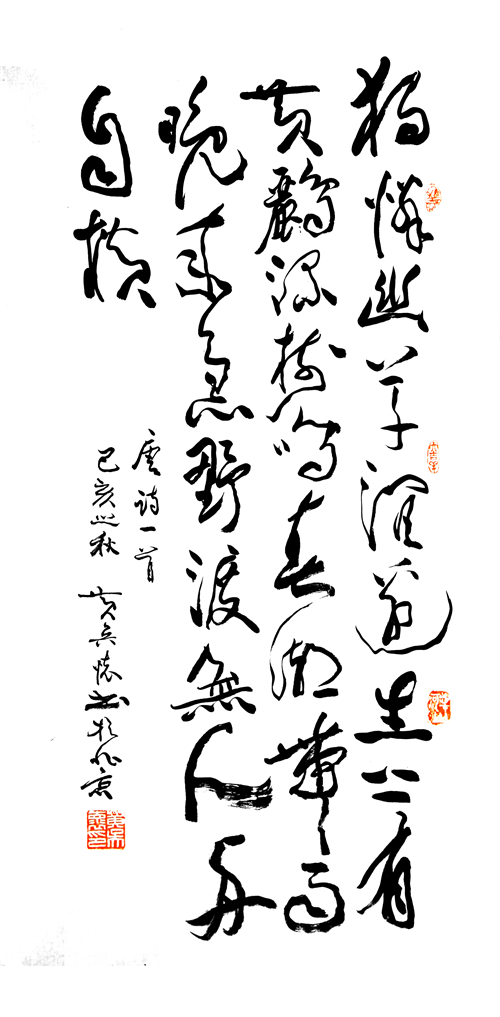 獨憐幽草澗邊生上有
黄鸝深樹鳴春潮帶雨
晚来急野渡無人舟
自橫
唐詩一首
己亥之秋 黄兵懷书於北京